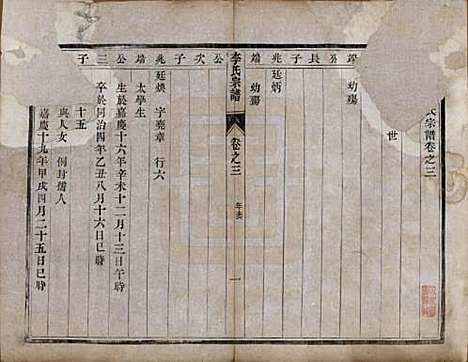 氏宗譜卷之三
世
鐸公長子兆端
幼殤
廷炳
幼殤
李氏宗譜
卷之三
年表
一
公次子兆端公三子
廷煥 字堯章 行六
太學生
生於嘉慶十六年辛未十二月十三日午時
卒於同治四年乙丑八月十六日巳時
十五
與人女 例封孺人
嘉慶十九年甲戌四月二十五日巳時